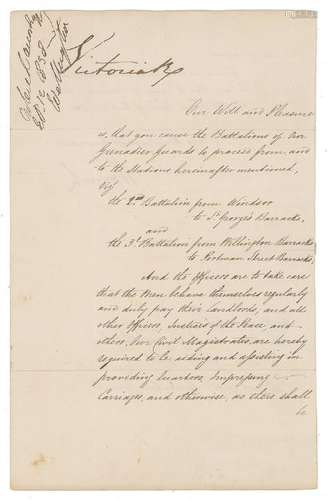 Victoria R
Our Will and Pleasure
is, that you cause the Battalions of Our
Grenadier Guards to proceed from, and
to the Stations hereinafter mentioned,
Viz
the 2nd Battalion from Windsor
to St. George's Barracks,
and
the 3d Battalion from Wellington Barracks
to Portman Street Barracks,
And the Officers are to take care
that the Men behave themselves regularly
and duly pay their Landlords, and all
other Officers, Justices of the Peace, and
others, Our Civil Magistrates, are hereby
required to be aiding and assisting in
providing Quarters, Impressing
Carriages, and otherwise, as there shall
be